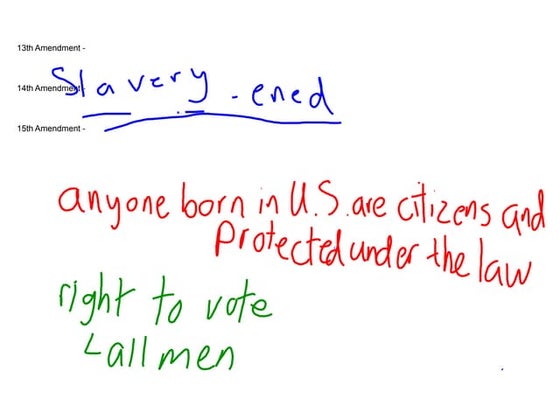 13th Amendment -
14th Amendment -
Slavery - ened
15th Amendment -
anyone born in U.S. are citizens and
protected under the law
right to vote
all men